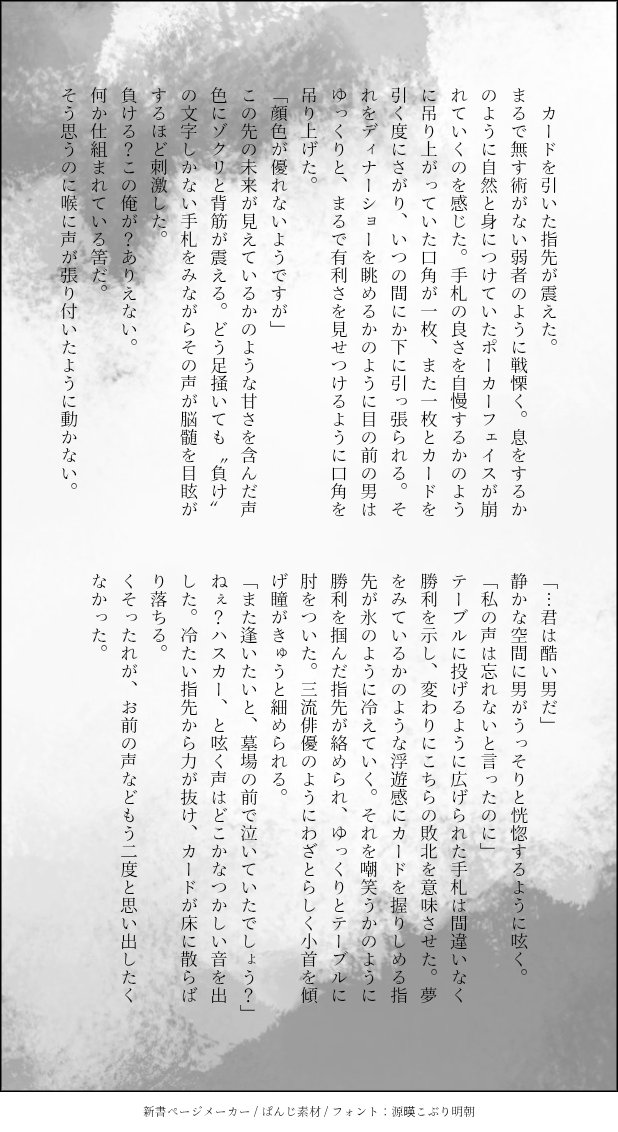 カードを引いた指先が震えた。
まるで無す術がない弱者のように戦慄く。息をするか
のように自然と身につけていたポーカーフェイスが崩
れていくのを感じた。手札の良さを自慢するかのよう
に吊り上がっていた口角が一枚、また一枚とカードを
引く度にさがり、いつの間にか下に引っ張られる。そ
れをディナーショーを眺めるかのように目の前の男は
ゆっくりと、まるで有利さを見せつけるように口角を
吊り上げた。
「顔色が優れないようですが」
この先の未来が見えているかのような甘さを含んだ声
色にゾクリと背筋が震える。どう足掻いても〝負け〟
の文字しかない手札をみながらその声が脳髄を目眩が
するほど刺激した。
負ける？この俺が？ありえない。
何か仕組まれている筈だ。
そう思うのに喉に声が張り付いたように動かない。
「…君は酷い男だ」
静かな空間に男がうっそりと恍惚するように呟く。
「私の声は忘れないと言ったのに」
テーブルに投げるように広げられた手札は間違いなく
勝利を示し、変わりにこちらの敗北を意味させた。夢
をみているかのような浮遊感にカードを握りしめる指
先が氷のように冷えていく。それを嘲笑うかのように
勝利を掴んだ指先が絡められ、ゆっくりとテーブルに
肘をついた。三流俳優のようにわざとらしく小首を傾
げ瞳がきゅうと細められる。
「また逢いたいと、墓場の前で泣いていたでしょう？」
ねぇ？ハスカー、と呟く声はどこかなつかしい音を出
した。冷たい指先から力が抜け、カードが床に散らば
り落ちる。
くそったれが、お前の声などもう二度と思い出したく
なかった。
新書ページメーカー / ぱんじ素材 / フォント：源暎こぶり明朝